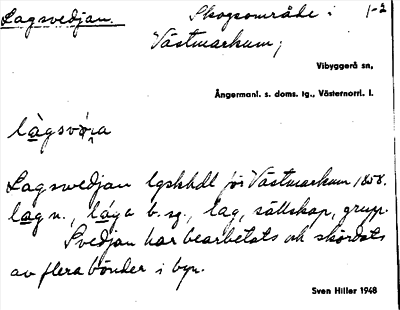 Lagsvedjan. Skogsområde i 1-2
Västmarkum;
Vibyggerå sn,
Ångermanl. s. doms. tg., Västernorrl. l.
làgsvǿra
Lagsvedjan lgskhdl för Västmarkum 1858.
lag n., lága b. sg., lag, sällskap, grupp.
Svedjan har bearbetats och skördats
av flera bönder i byn.
Sven Hiller 1948